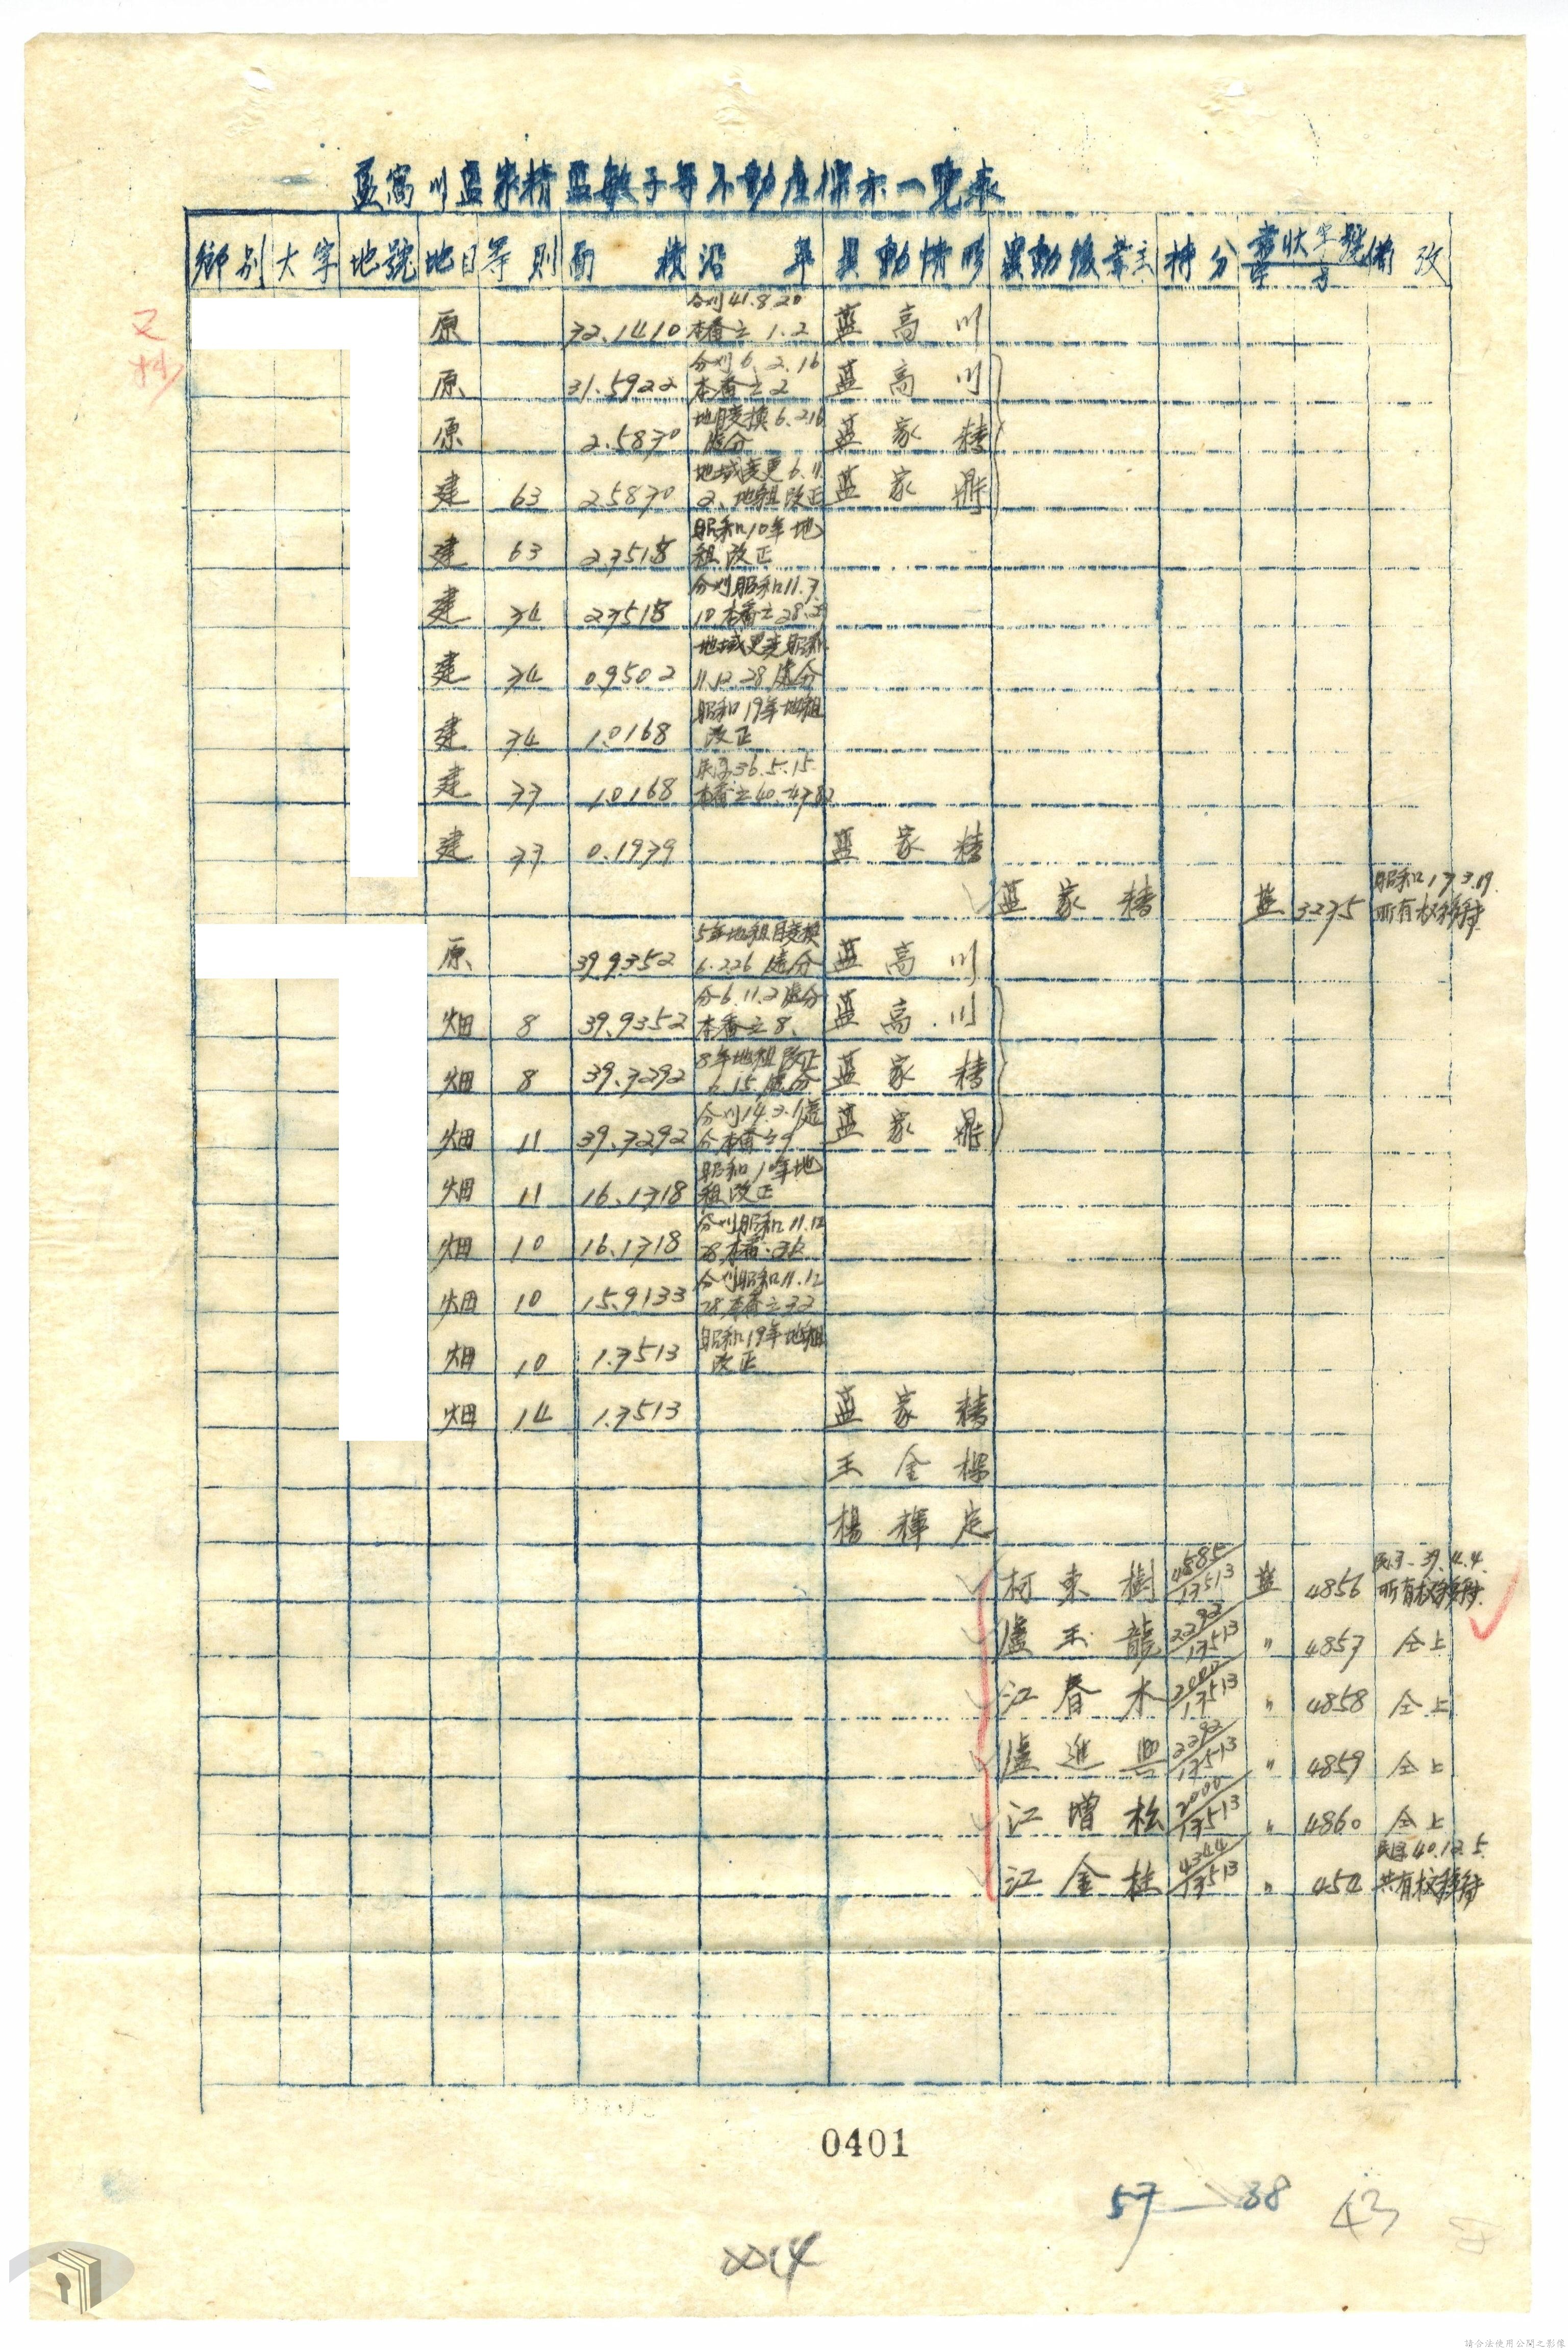 藍高川藍家精藍敏子等不動產標示一覽表
鄉別 大字 地號 地目 等則 面積 沿革 異動情形 異動後業主 持分 書狀字號 字 号 備攷
又抄
原 72.1410 分刈41.8.20 本番之1.2 藍高川
原 31.5922 分刈6.2.16 本番之2 藍高川
原 2.5870 地目変換6.2.16 處分 藍家精
建 63 2.5870 地域変更6.11.2、地租改正 藍家鼎
建 63 2.7518 昭和10年地租改正
建 74 2.7518 分刈昭和11.7.10.本番之28.2
建 74 0.9502 地域更変昭和11.12.28處分
建 74 1.0168 昭和19年地租改正
建 77 1.0168 民國36.5.15.
建 77 0.1979 藍家精
藍家精 藍 3275 昭和17.3.19. 所有权移轉
原 39.9352 5年地租目変換6.2.26處分 藍高川
畑 8 39.9352 分6.11.2處分本番之8、 藍高川
畑 8 39.7292 8年地租改正6.15.處分 藍家精
畑 11 39.7292 分刈14.3.1處分本番之9 藍家鼎
畑 11 16.1718 昭和10年地租改正
畑 10 16.1718 分刈昭和11.12.28本番.31
畑 10 15.9133 分刈昭和11.12.28本番之32
畑 10 1.7513 昭和19年地租改正
畑 14 1.7513 藍家精
王金樑
楊輝定
柯東樹 4585/17513 藍 4856 民國39.4.4. 所有权移轉
盧玉龍 2292/17513 〃 4857 仝上
江春木 2000/17513 〃 4858 仝上
盧進興 2292/17513 〃 4859 仝上
江增松 2000/17513 〃 4860 仝上
江金柱 4344/17513 〃 454 民國40.12.5. 共有权移轉
0401
57—38 43
0014
請合法使用公開之影像